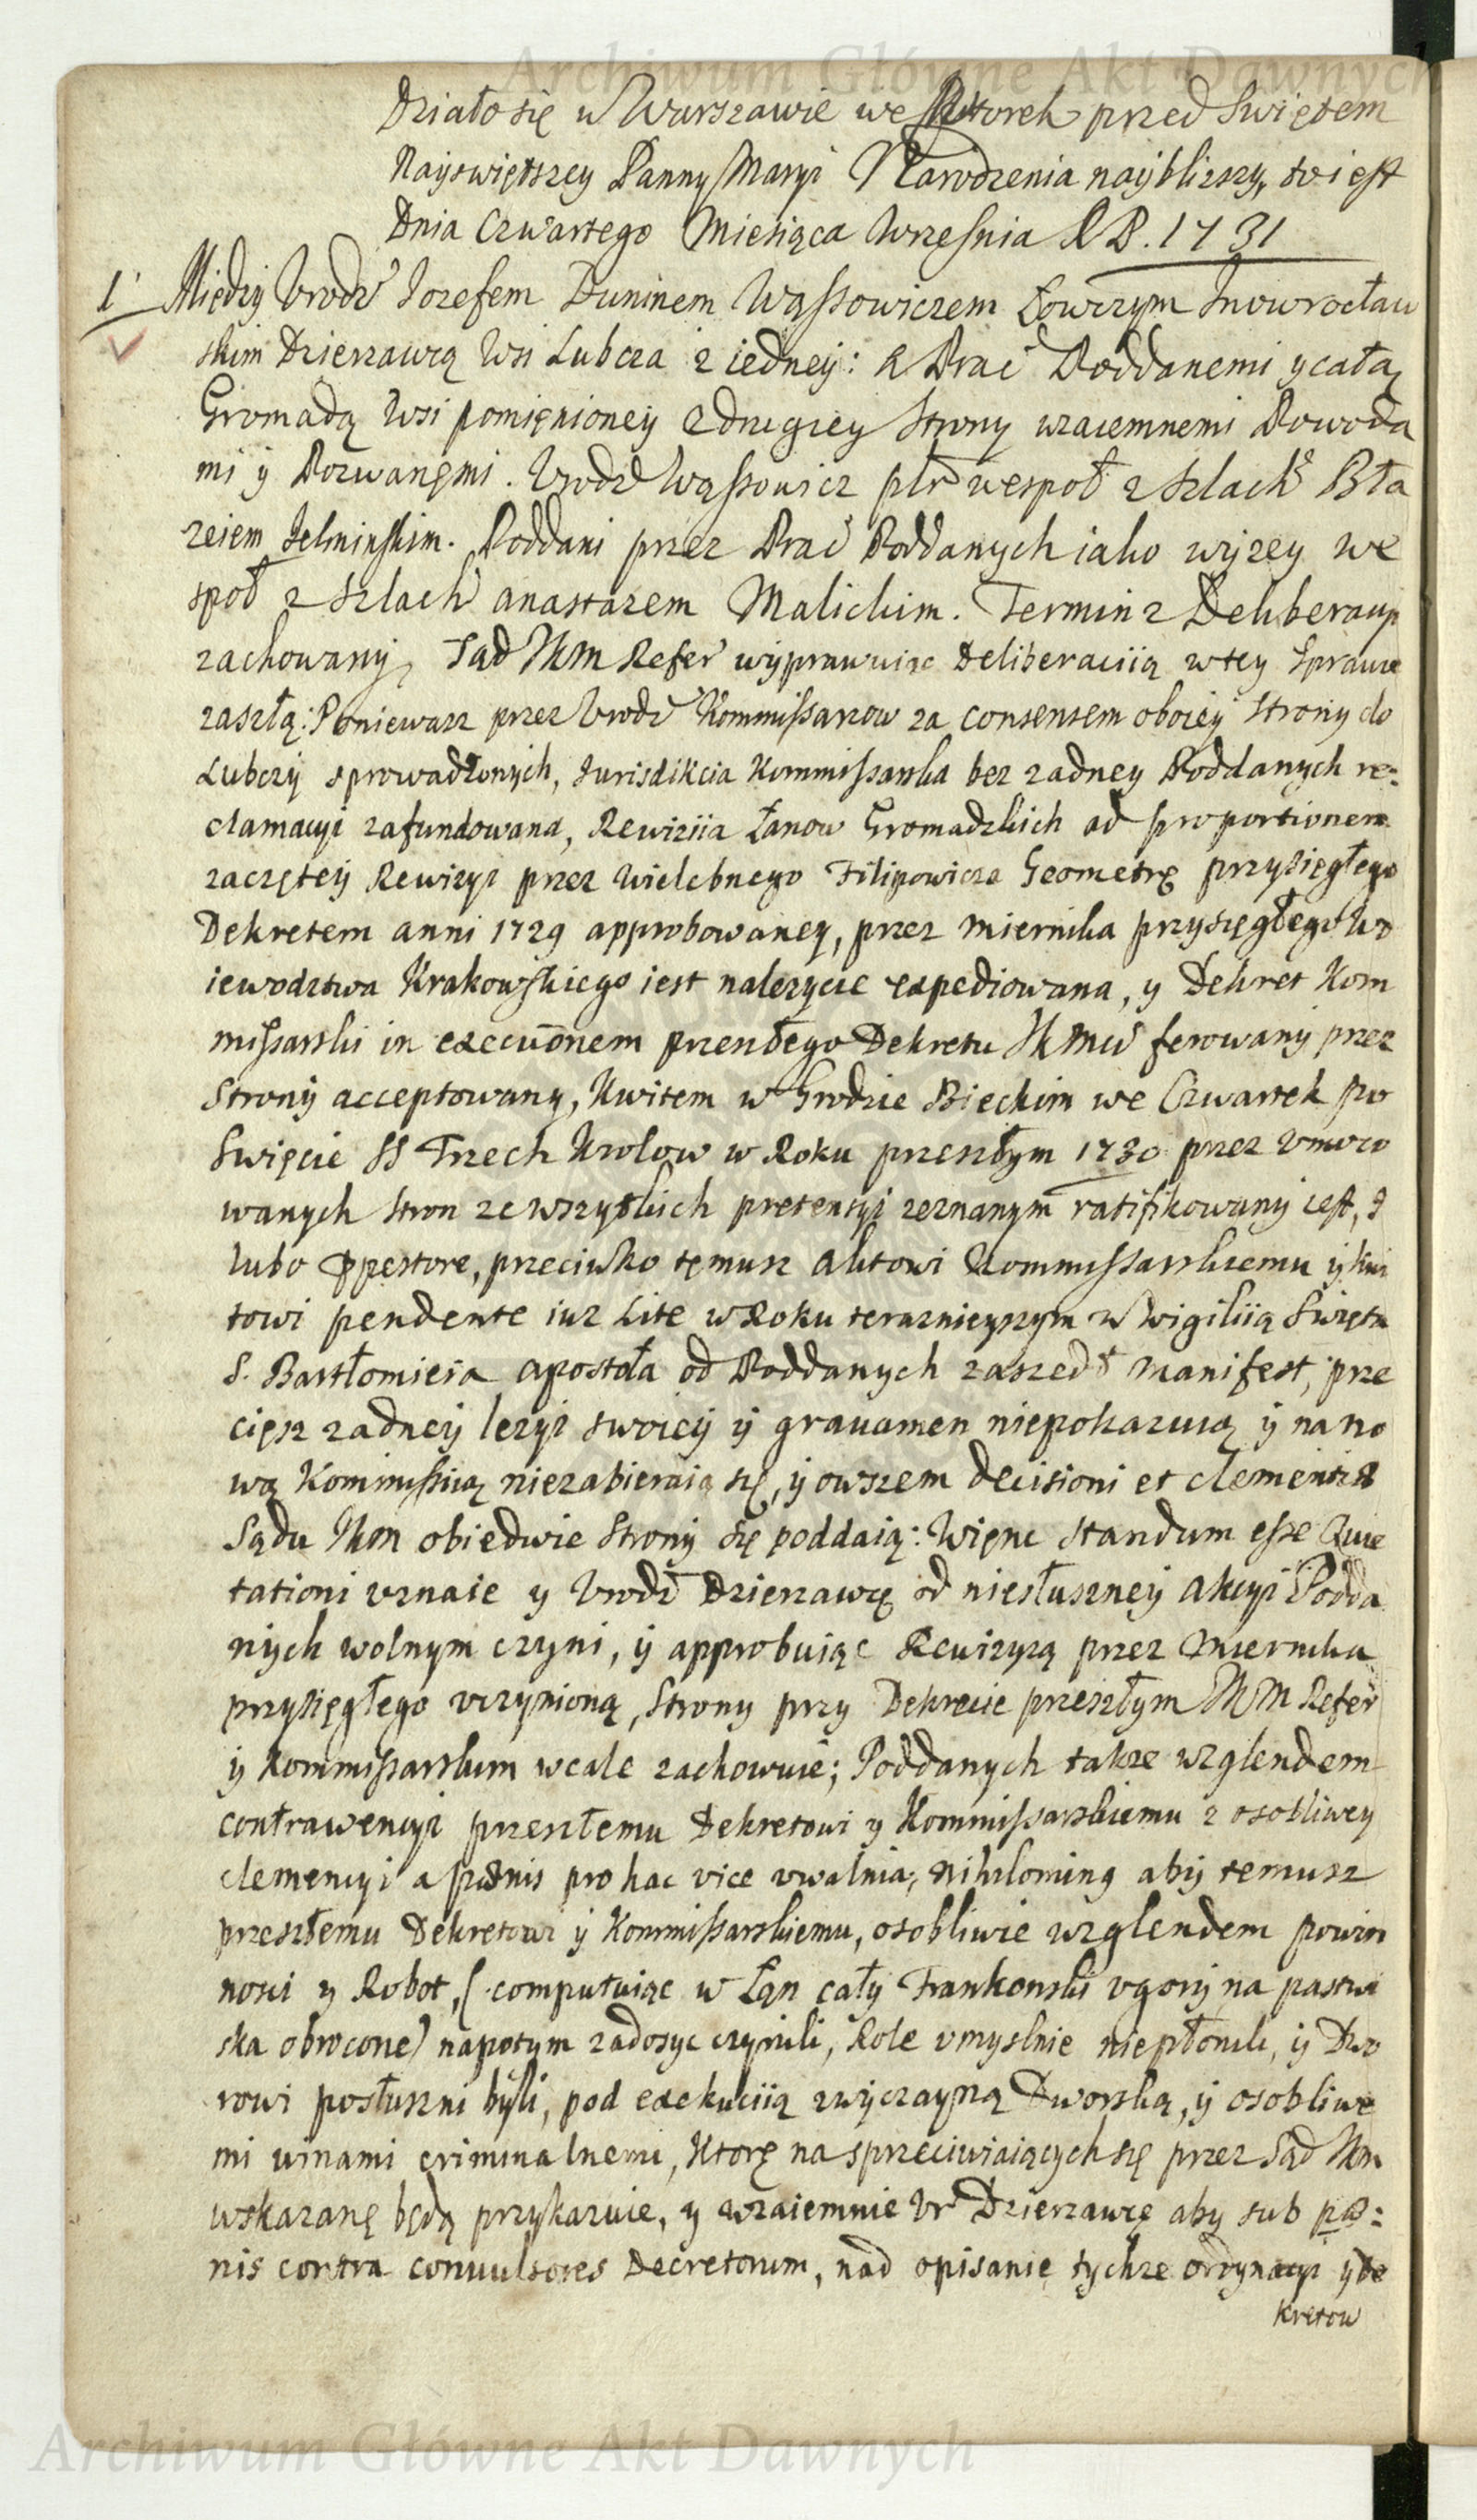 Działo się w Warszawie we Wtorek przed Swiętem
Nayswiętszey Panny Maryi Narodzenia naybliższy, to iest
Dnia Czwartego Miesiąca Wrzesnia R P. 1731
1 Między Urodz Jozefem Duninem Wąssowiczem Łowczym Inowrocław
skim Dzierzawcą Wsi Lubcza z iedney: a Prac Poddanemi y całą
Gromadą Wsi pomięnioney z drugiey Strony wzaiemnemi Powoda
mi y Pozwanęmi. Urodz Wąssowicz pltr wespoł z Szlach Bła
zeiem Jelminskim. Poddani przez Prac Poddanych iako wyzey we
społ z Szlach anastazem Malickim. Termin z Deliberacyi
zachowany, Sąd JKM Refer wyprawuiąc Deliberaciią w tey Sprawie
zaszłą: Poniewasz przez Urodz Kommissarzow za consensem oboiey Strony do
Lubczy sprowadzonych, Jurisdikcia Kommissarska bez zadney Poddanych re:
clamacyi zafundowana, Rewiziia Łanow Gromadzkich ad proportionem
zaczętey Rewizyi przez Wielebnego Filipowicza Geometrę przysięgłego
Dekretem anni 1729 approbowaney, przez miernika przysięgłego Wo
iewodztwa Krakowskiego iest nalezycie expediowana, y Dekret Kom
missarski in execuōnem przeszłego Dekretu JKMci ferowany przez
Strony acceptowany, Kwitem w Grodzie Bieckim we Czwartek po
Swięcie SS Trzech Krolow w Roku przeszłym 1730 przez umoco
wanych stron ze wszystkich pretensyi zeznanym ratifikowany iest, I
lubo przeciwko temusz aktowi Kommissarskiemu y kwi
towi pendente iuz Lite w Roku teraznieyszym w Wigiliią Swięta
S. Bartłomieia apostoła od Poddanych zaszedł manifest, prze
cięsz zadney lezyi swoiey y gravamen niepokazuią y na no
wą Kommissiią niezabieraią się, y owszem decisioni et clementiæ
Sądu JKM obiedwie Strony się poddaią: Więnc standum esse Quie
tationi uznaie y Urodz Dzierzawcę od niesłuszney akcyi Podda
nych wolnym czyni, y approbuiąc Rewizyą przez Miernika
przysięgłego uczynioną, Strony przy Dekrecie przeszłym JKM Refer
y Kommissarskim wcale zachowuie; Poddanych także wzglendem
contrawencyi przeszłemu Dekretowi y Kommissarskiemu z osobliwey
clemencyi a pœnis pro hac vice uwalnia, nihilominq aby temusz
przeszłemu Dekretowi y Kommissarskiemu, osobliwie wzglendem powin
nosci y Robot, (computuiąc w Łan cały Frankonski ugory na pastwi
ska obrocone) napotym zadosyc czynili, Role umyslnie niepłonili, y Dwo
rowi posłuszni byli, pod exekuciią zwyczayną Dworską, y osobliwe
mi winami criminalnemi, Ktorę na sprzeciwiaiących się przez Sąd JKM
wskazanę będą przykazuie, y wzaiemnie Ur Dzierzawcę aby sub pœ:
nis contra convulsores Decretorum, nad opisanie tychże ordynacyi y De
kretow